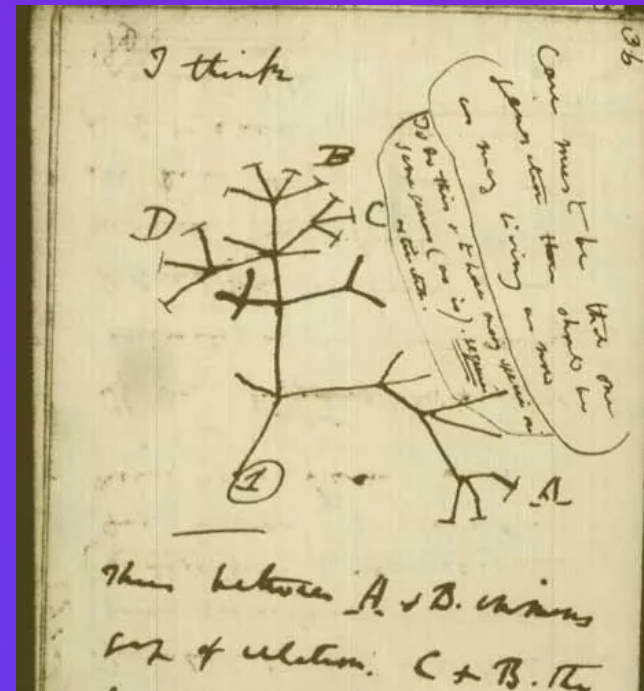 I think
B
D
C
A
1
36
Case must be that one
generation then should be
as many living as now
To do this & to have many species in
same genus (as is). requires
extinction.
Thus between A & B. immens
gap of relation. C & B. The